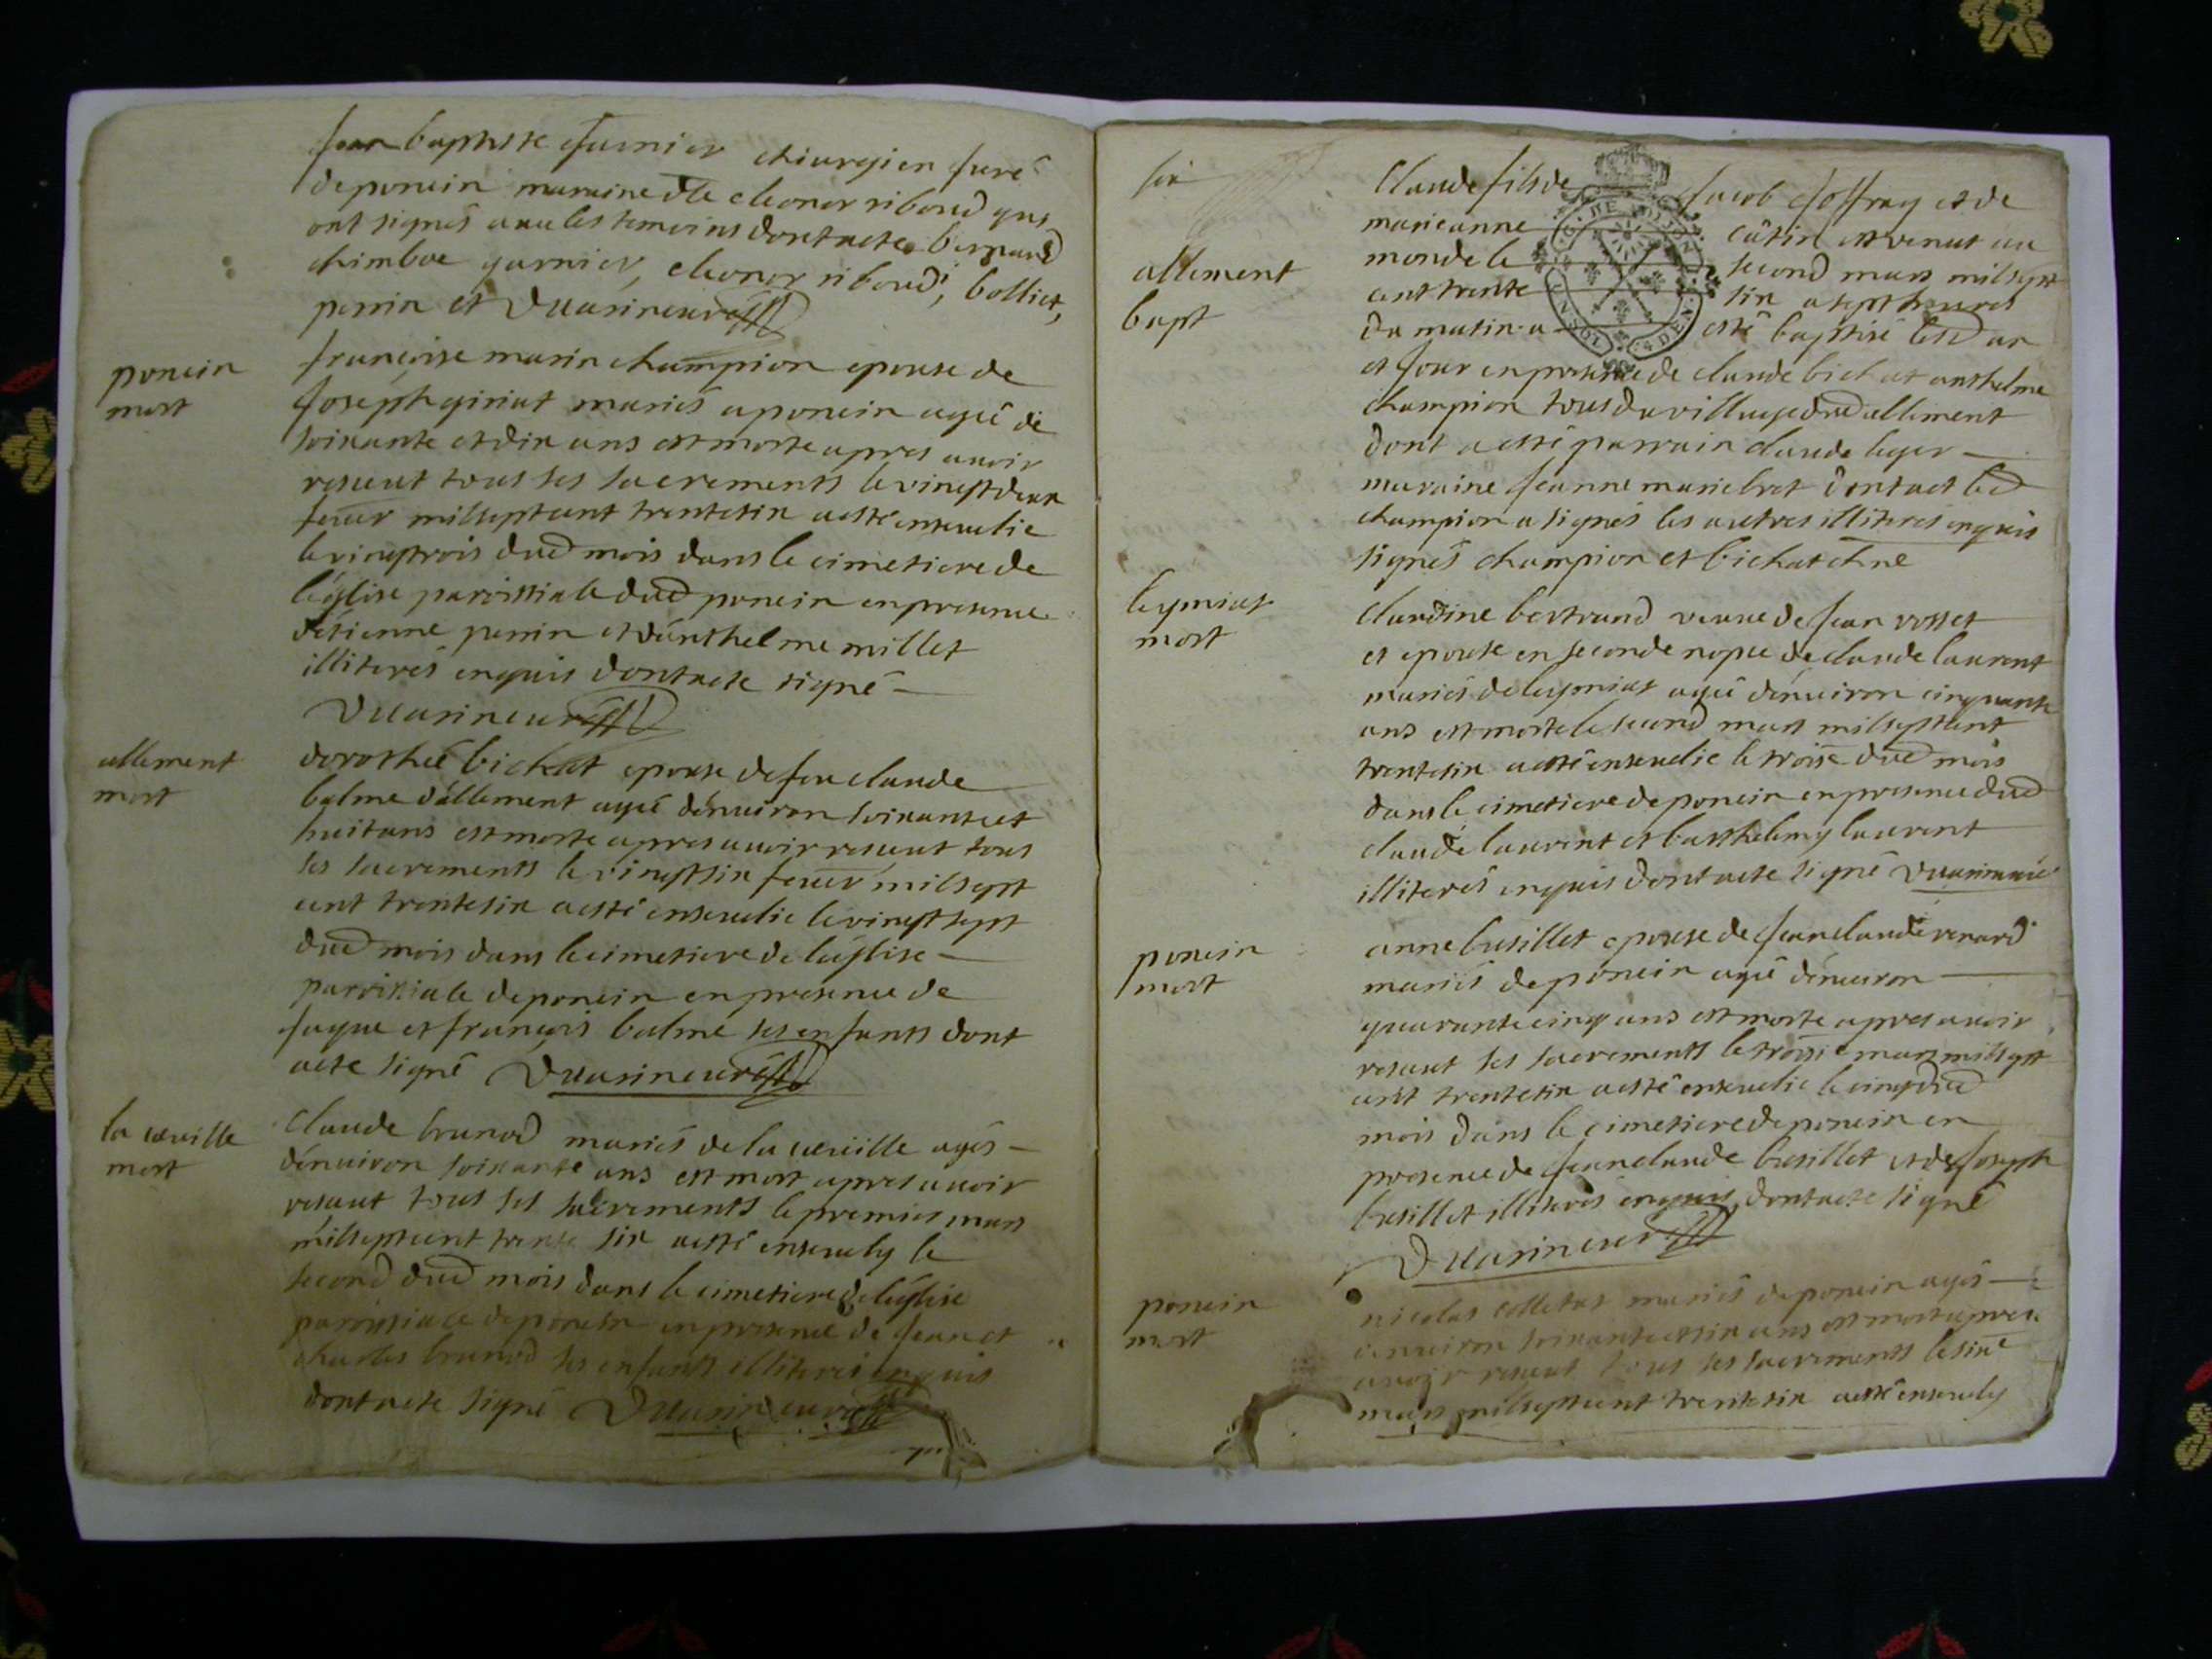 Jean baptiste garnier chiurgien Juré
de poncin maraine dlle eleonor riboud qui
ont signés avec les temoins dont acte bernard
chimboe garnier, eleonor riboud, bolliet,
perrin et Duasineur
poncin
mort
francoise marin champion epouse de
Joseph giriat mariés a poncin agée de
soixante et dix ans est morte apres avoir
reseut tous ses sacrements le vingtdeux
feuer milseptcent trentesix a esté enseuelie
le vingtrois dud mois dans le cimetiere de
léglise paroissiale dud poncin en presence
détienne perrin et dánthelme millet
illiterés enquis dont acte signé
Duasineur
allement
mort
dorothée bichat epouse de feu claude
balme dállement agée dénuiron soixante et
huit ans est morte apres auoir reseut tous
ses sacrements le vingtsix feuer milsept
cent trentesix a esté enseuelie le vingtsept
dud mois dans le cimetiere de léglise
paroissiale de poncin en presence de
Jaque et françois balme ses enfants dont
acte signé Duasineur
la cueille
mort
Claude brunod mariés de la cueüille agés
dénuiron soixante ans est mort apres auoir
reseut tous ses sacrements le premier mars
milseptcent trente six a esté enseuely le
second dud mois dans le cimetiere de léglise
paroissiale de poncin en presence de Jean et
charles brunod ses enfants illiterés enquis
dont acte signé Duasineur
six
allement
bapt
Claude fils de Jacob Joffray et de
marieanne cútin est venut au
monde le second mars milsept
cent trente six a sept heures
du matin a esté baptisé lesd an
et Jour en presence de claude bichat anthelme
champion tous du village dud allement
dont a esté parrain claude leger
maraine Jeanne marie bret dont act led
champion a signés les autres illiterés enquis
signés champion et bichat
leymiat
mort
claudine bertrand veuue de Jean rosset
et epouse en seconde nopce de claude laurent
mariés de leymiat agée dénuiron cinquante
ans est morte le second mars milseptcent
trentesix a esté enseuelie le troise dud mois
dans le cimetiere de poncin en presence dud
claude laurent et barthelemy laurent
illiterés enquis dont acte signé Duasineur
poncin
mort
anne busillet epouse de Jeanclaude renard
mariés de poncin agée dénuiron
quarante cinq ans est morte apres auoir
reseut ses sacrements le troisie mars milsept
cent trentesix a esté enseuelie le cinq dud
mois dans le cimetiere de poncin en
presence de Jeanclaude busillet et de Joseph
busillet illiterés enquis dont acte signé
Duasineur
poncin
mort
nicolas colletat mariés de poncin agés
denuiron soixante et six ans est mort apres
auoir reseut tous ses sacrements le sixe
mars milseptcent trentesix a esté enseuely